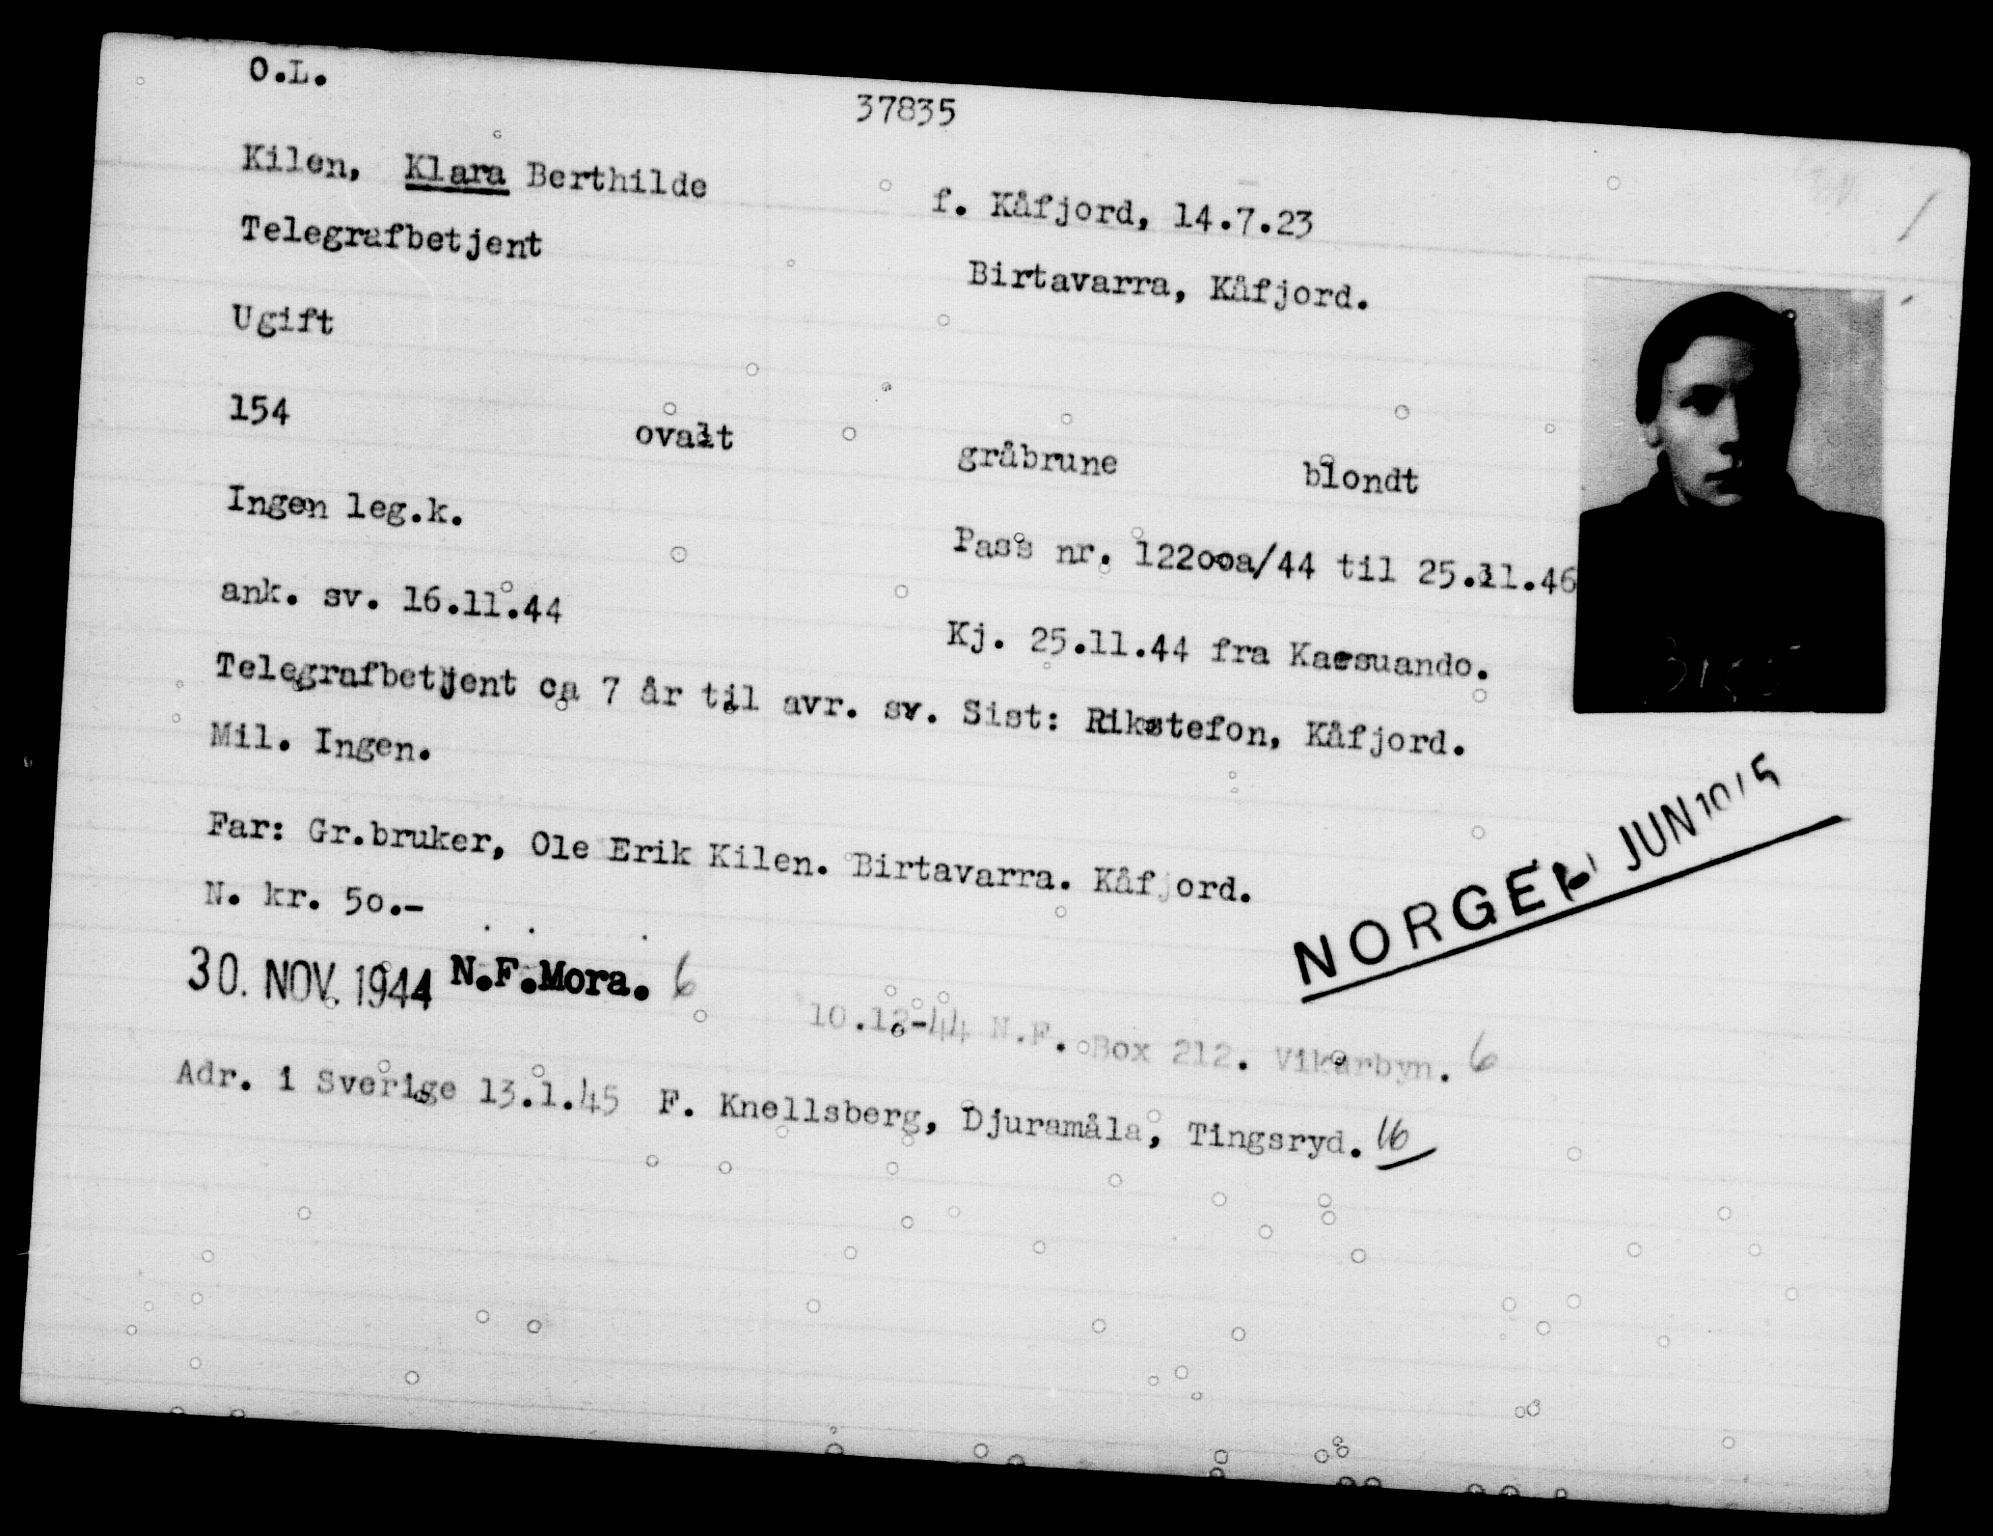 O.L.
37835
Kilen, Klara Berthilde
f. Kåfjord, 14.7.23
Telegrafbetjent
Birtavarra, Kåfjord.
Ugift
154 ovalt gråbrune blondt
Ingen leg.k.
Pass nr. 122ooa/44 til 25.11.46
ank. sv. 16.11.44
Kj. 25.11.44 fra Karesuando.
Telegrafbetjent ca 7 år til avr. sv. Sist: Rikstefon, Kåfjord.
Mil. Ingen.
Far: Gr.bruker, Ole Erik Kilen. Birtavarra. Kåfjord.
N. kr. 50.-
NORGE JUN
30. NOV. 1944 N.F.Mora. 6
10.12-44 N.F. Box 212. Vikarbyn. 6
Adr. i Sverige 13.1.45 F. Knellsberg, Djuramåla, Tingsryd. 16